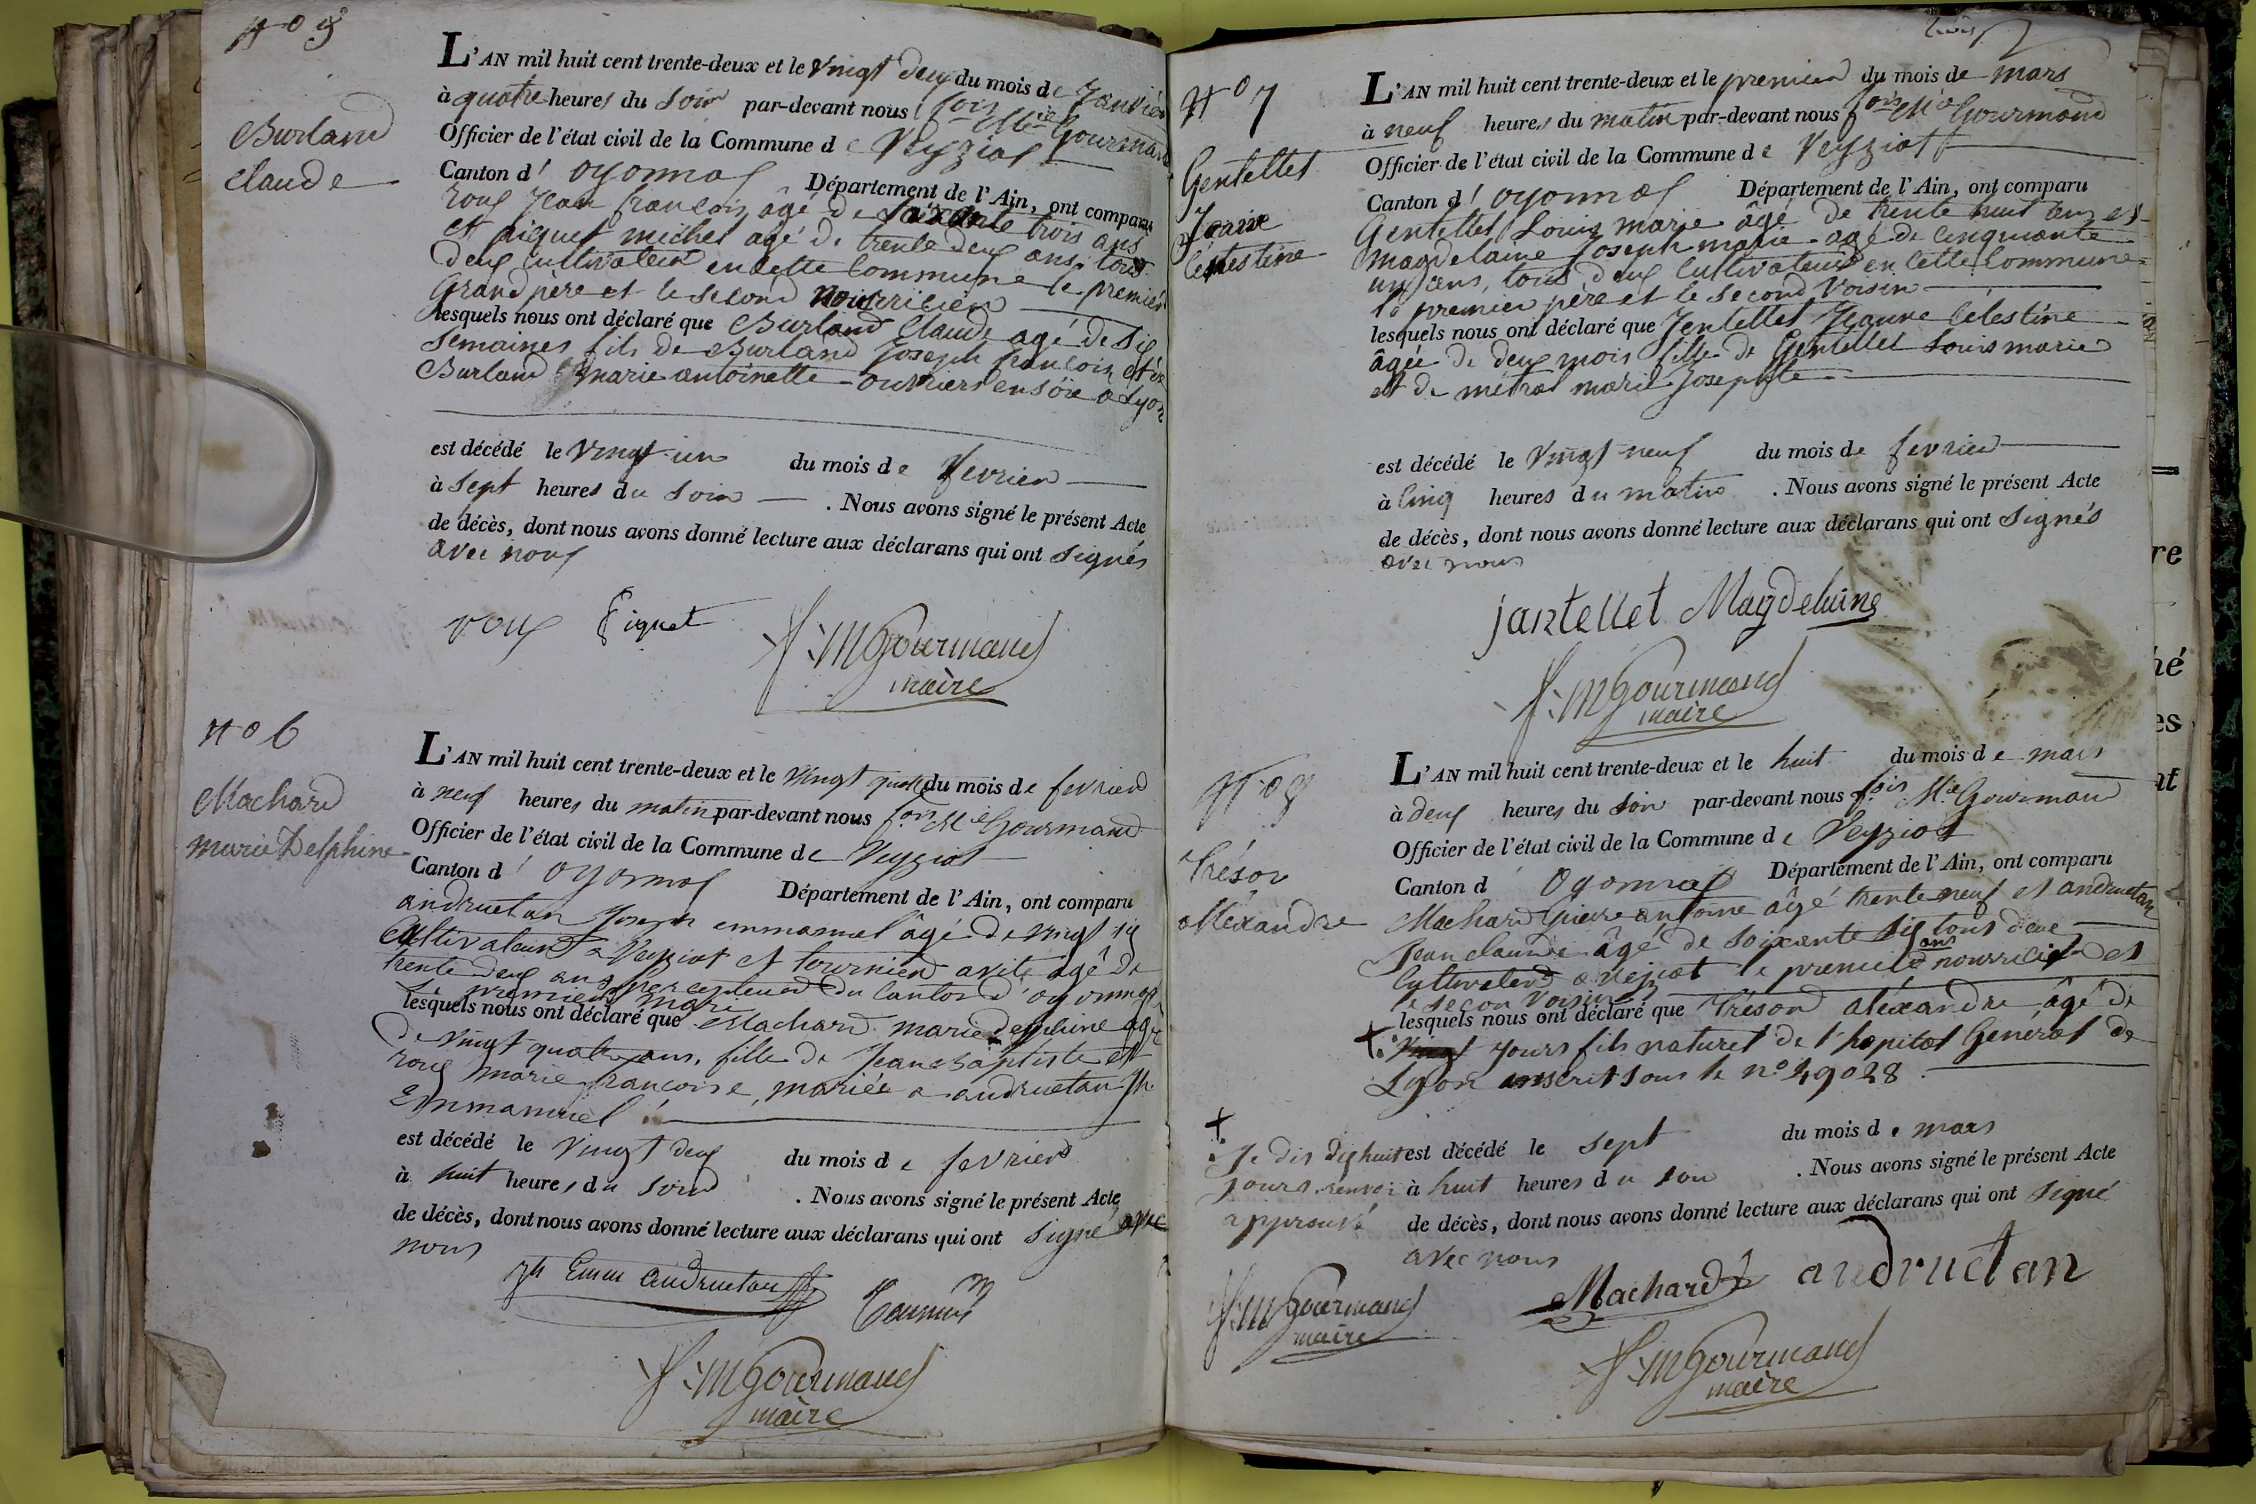 N° 5
Burland
Claude
L'AN mil huit cent trente-deux et le vingt deux du mois de Janvier
à quatre heures du soir par-devant nous fois Mie Gourmand
Officier de l'état civil de la Commune de Veyziat
Canton d' oyonnas Département de l'Ain, ont comparu
roux Jean françois âgé de soixante trois ans
et piquet michel agé de trente deux ans, tous
deux cultivateur en cette Commune le premier
Grand père et le second nourricier
lesquels nous ont déclaré que Burland Claude agé de six
semaines fils de Burland Joseph francoin et de
Burland marie antoinette ouvriers en soie a Lyon
est décédé le vingt un du mois de fevrier
à sept heures du soir . Nous avons signé le présent Acte
de décès, dont nous avons donné lecture aux déclarans qui ont signés
avec nous
roux Piquet f. m Gourmand
maire
N° 6
Machard
marie Delphine
L'AN mil huit cent trente-deux et le vingt quatre du mois de fevrier
à neuf heures du matin par-devant nous fois Mie Gourmand
Officier de l'état civil de la Commune de Veyziat
Canton d' oyonnas Département de l'Ain, ont comparu
andruetan Joseph emmanuel âgé de vingt six
cultivateur a Veyziat et tournier avite agé de
trente deux ans percepteur du Canton d'oyonnas
Le premier mari
lesquels nous ont déclaré que Machard marie delphine agé
de vingt quatre ans, fille de Jean Baptiste et
roux marie francoise, mariée a andruetan Jh
Emmanuel
est décédé le vingt deux du mois de fevrier
à huit heures du soir . Nous avons signé le présent Acte
de décès, dont nous avons donné lecture aux déclarans qui ont signé avec
nous
Jh Emm andruetan Tournier
f. m Gourmand
maire
trois
N° 7
Gentellet
Jeanne
Célestine
L'AN mil huit cent trente-deux et le premier du mois de mars
à neuf heures du matin par-devant nous fois Mie Gourmand
Officier de l'état civil de la Commune de Veyziat
Canton d' oyonnas Département de l'Ain, ont comparu
Gentellet Louis marie âgé de trente huit ans et
magdelaine Joseph marie agé de cinquante
un ans, tous deux cultivateurs en cette commune
le premier père et le second voisin
lesquels nous ont déclaré que Jentellet Jeanne Célestine
âgée de deux mois fille de Gentellet Louis marie
et de métral marie Josephte
est décédé le vingt neuf du mois de fevrier
à cinq heures du matin . Nous avons signé le présent Acte
de décès, dont nous avons donné lecture aux déclarans qui ont signés
avec nous
jantellet Magdelaine
f. m Gourmand
maire
N° 8
trésor
aléxandre
L'AN mil huit cent trente-deux et le huit du mois de mars
à deux heures du soir par-devant nous fois Mie Gourmand
Officier de l'état civil de la Commune de Veyziat
Canton d' Oyonnas Département de l'Ain, ont comparu
Machard pierre antoine âgé trente neuf et andruetan
Jean claude âgé de soixante six ans tous deux
cultivateur a veyziat le premier nourricier et
le secon voisin
lesquels nous ont déclaré que trésor aléxandre âgé de
+ vingt jours fils naturel de l'hopital Genéral de
Lyon inscrit sous le n° 49028
+ Je dis dix huit
jours. renvoi
approuvé
est décédé le sept du mois de mars
à huit heures du soir . Nous avons signé le présent Acte
de décès, dont nous avons donné lecture aux déclarans qui ont signé
avec nous
f. m Gourmand
maire
Machard andruetan
f. m Gourmand
maire
re
hé
es
nt